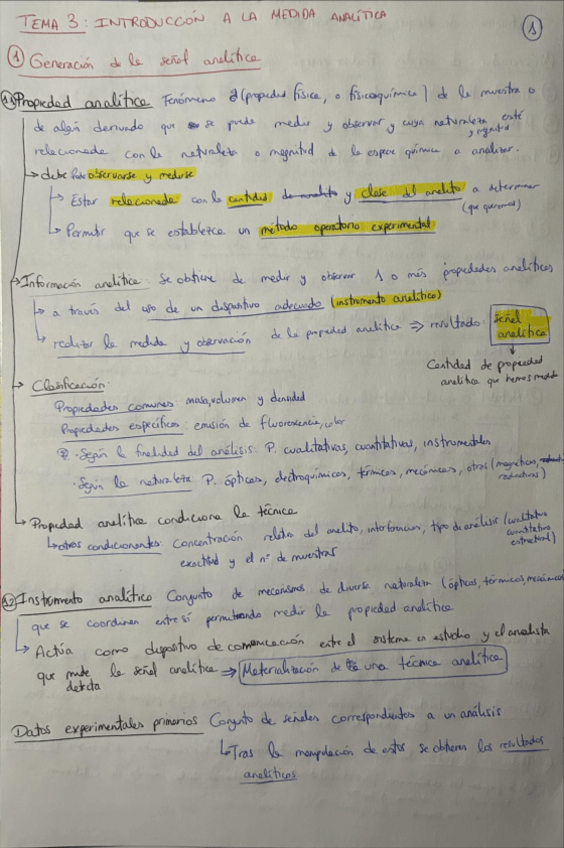 TEMA 3: INTRODUCCIÓN A LA MEDIDA ANALÍTICA
1
① Generación de la señal analítica
1.1 Propiedad analítica Fenómeno (propiedad física, o fisicoquímica) de la muestra o
de algún derivado que se puede medir y observar y cuya naturaleza y magnitud esté
relacionada con la naturaleza o magnitud de la especie química a analizar.
→ debe observarse y medirse
↳ Estar relacionada con la cantidad y clase del analito a determinar
(que queremos)
↳ Permitir que se establezca un método operatorio experimental
→ Información analítica: Se obtiene de medir y observar 1 o más propiedades analíticas
↳ a través del uso de un dispositivo adecuado (instrumento analítico)
↳ realizar la medida y observación de la propiedad analítica ⇒ resultado: señal analítica
Cantidad de propiedad
analítica que hemos medido
→ Clasificación:
Propiedades comunes: masa, volumen y densidad
Propiedades específicas: emisión de fluorescencia, color
- Según la finalidad del análisis: P. cualitativas, cuantitativas, instrumentales
- Según la naturaleza P. ópticas, electroquímicas, térmicas, mecánicas, otras (magnéticas, radiactivas)
→ Propiedad analítica condiciona la técnica
↳ otros condicionantes: Concentración relativa del analito, interferencias, tipo de análisis (cualitativo cuantitativo estructural)
exactitud y el nº de muestras
1.2 Instrumento analítico Conjunto de mecanismos de diversa naturaleza (ópticos, térmicos, mecánicos)
que se coordinan entre sí permitiendo medir la propiedad analítica
↳ Actúa como dispositivo de comunicación entre el sistema en estudio y el analista
que mide la señal analítica ⇒ Materialización de una técnica analítica
detecta
Datos experimentales primarios Conjunto de señales correspondientes a un análisis
↳ Tras la manipulación de estos se obtienen los resultados
analíticos